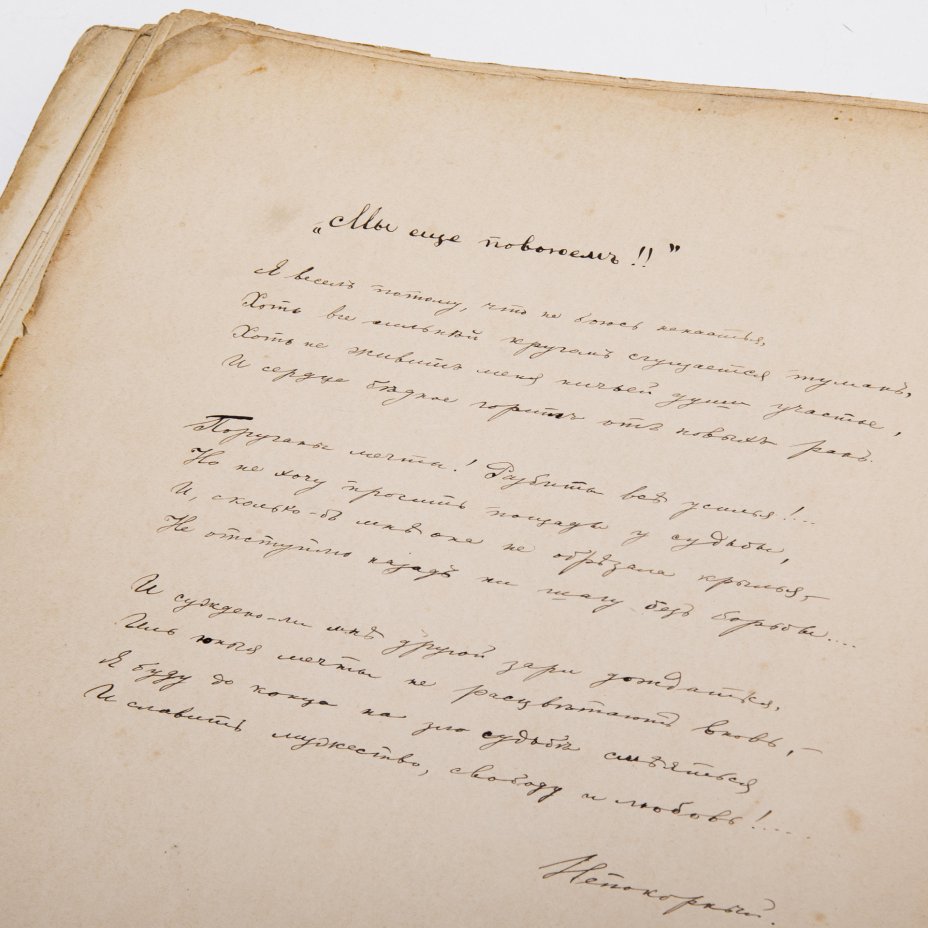 „Мы еще повоюемъ!!”
Я веселъ потому, что не боюсь ненастья,
Хоть все сильнѣй кругомъ сгущается туманъ,
Хоть не живитъ меня ничьей души участье,
И сердце бѣдное горитъ отъ новыхъ ранъ.
Поруганы мечты! Разбиты всѣ усилья!...
Но не хочу просить пощады у судьбы,
И, сколько-бъ мнѣ она не обрѣзала крылья,—
Не отступлю назадъ ни шагу безъ борьбы....
И суждено-ли мнѣ другой зари дождаться,
Иль юныя мечты не расцвѣтаютъ вновь,—
Я буду до конца на зло судьбѣ смѣяться
И славить мужество, свободу и любовь!.....
Непокорный.